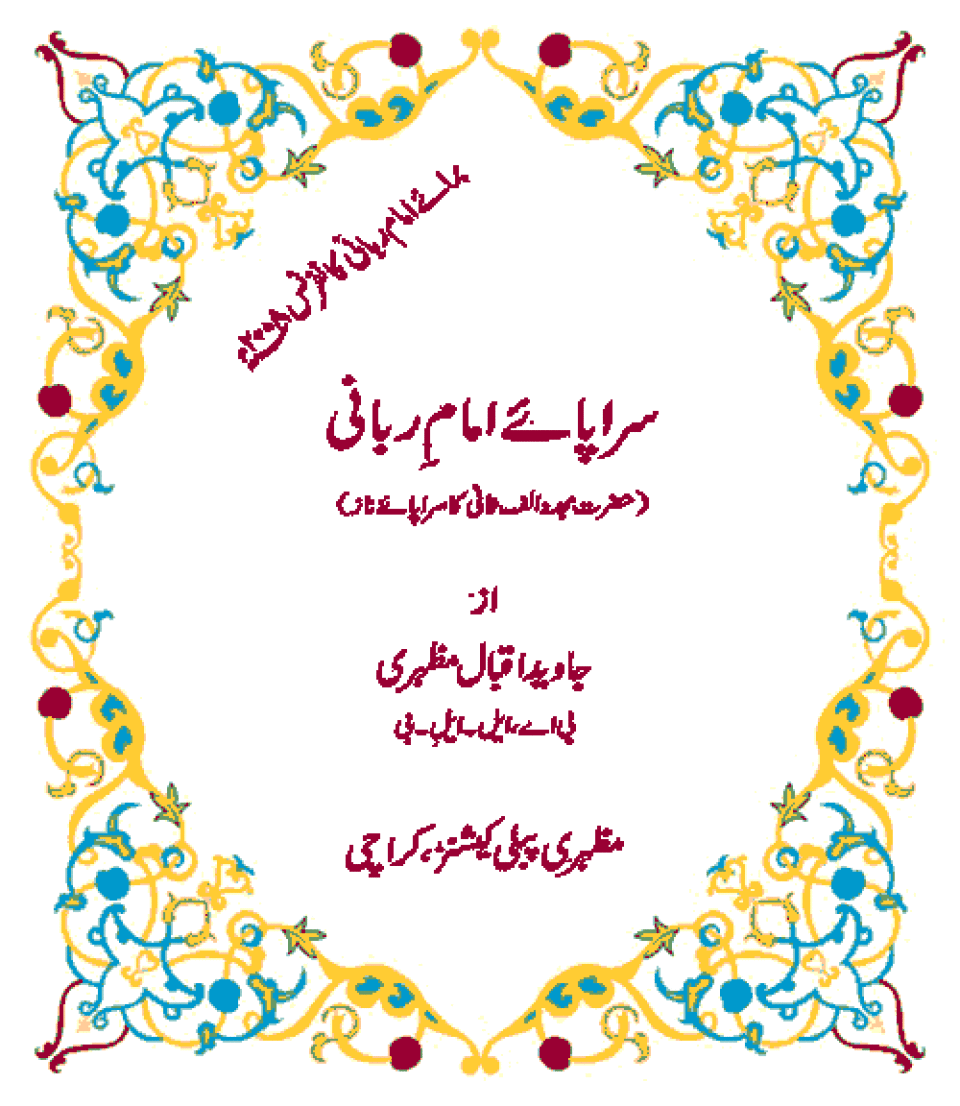 برائے امام ربانی کانفرنس ۲۰۰۸ء
سراپائے امامِ ربانی
(حضرت مجدد الف ثانی کا سراپائے ناز)
از
جاوید اقبال مظہری
بی اے، ایل۔ ایل۔ بی
مظہری پبلی کیشنز، کراچی